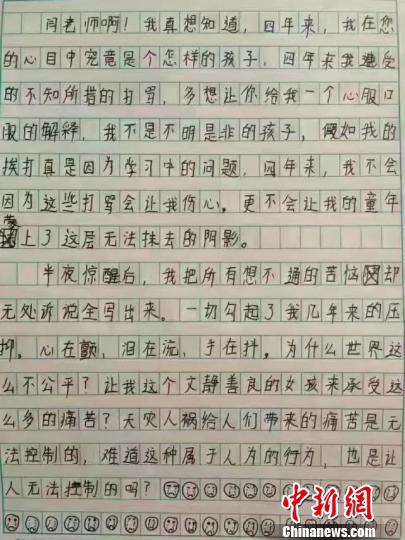 闫老师啊！我真想知道，四年来，我在您
的心目中究竟是个怎样的孩子，四年来我遭受
的不知所措的打骂，多想让你给我一个心服口
服的解释，我不是不明是非的孩子，假如我的
挨打真是因为学习中的问题，四年来，我不会
因为这些打骂会让我伤心。更不会让我的童年
蒙上了这层无法抹去的阴影。
半夜惊醒后，我把所有想不通的苦恼却
无处诉说全写出来。一切勾起了我几年来的压
抑。心在颤，泪在流，手在抖。为什么世界这
么不公平？让我这个文静善良的女孩来承受这
么多的痛苦？天灾人祸给人们带来的痛苦是无
法控制的，难道这种属于人为的行为，也是让
人无法控制的吗？
中新网
www.chinanews.com